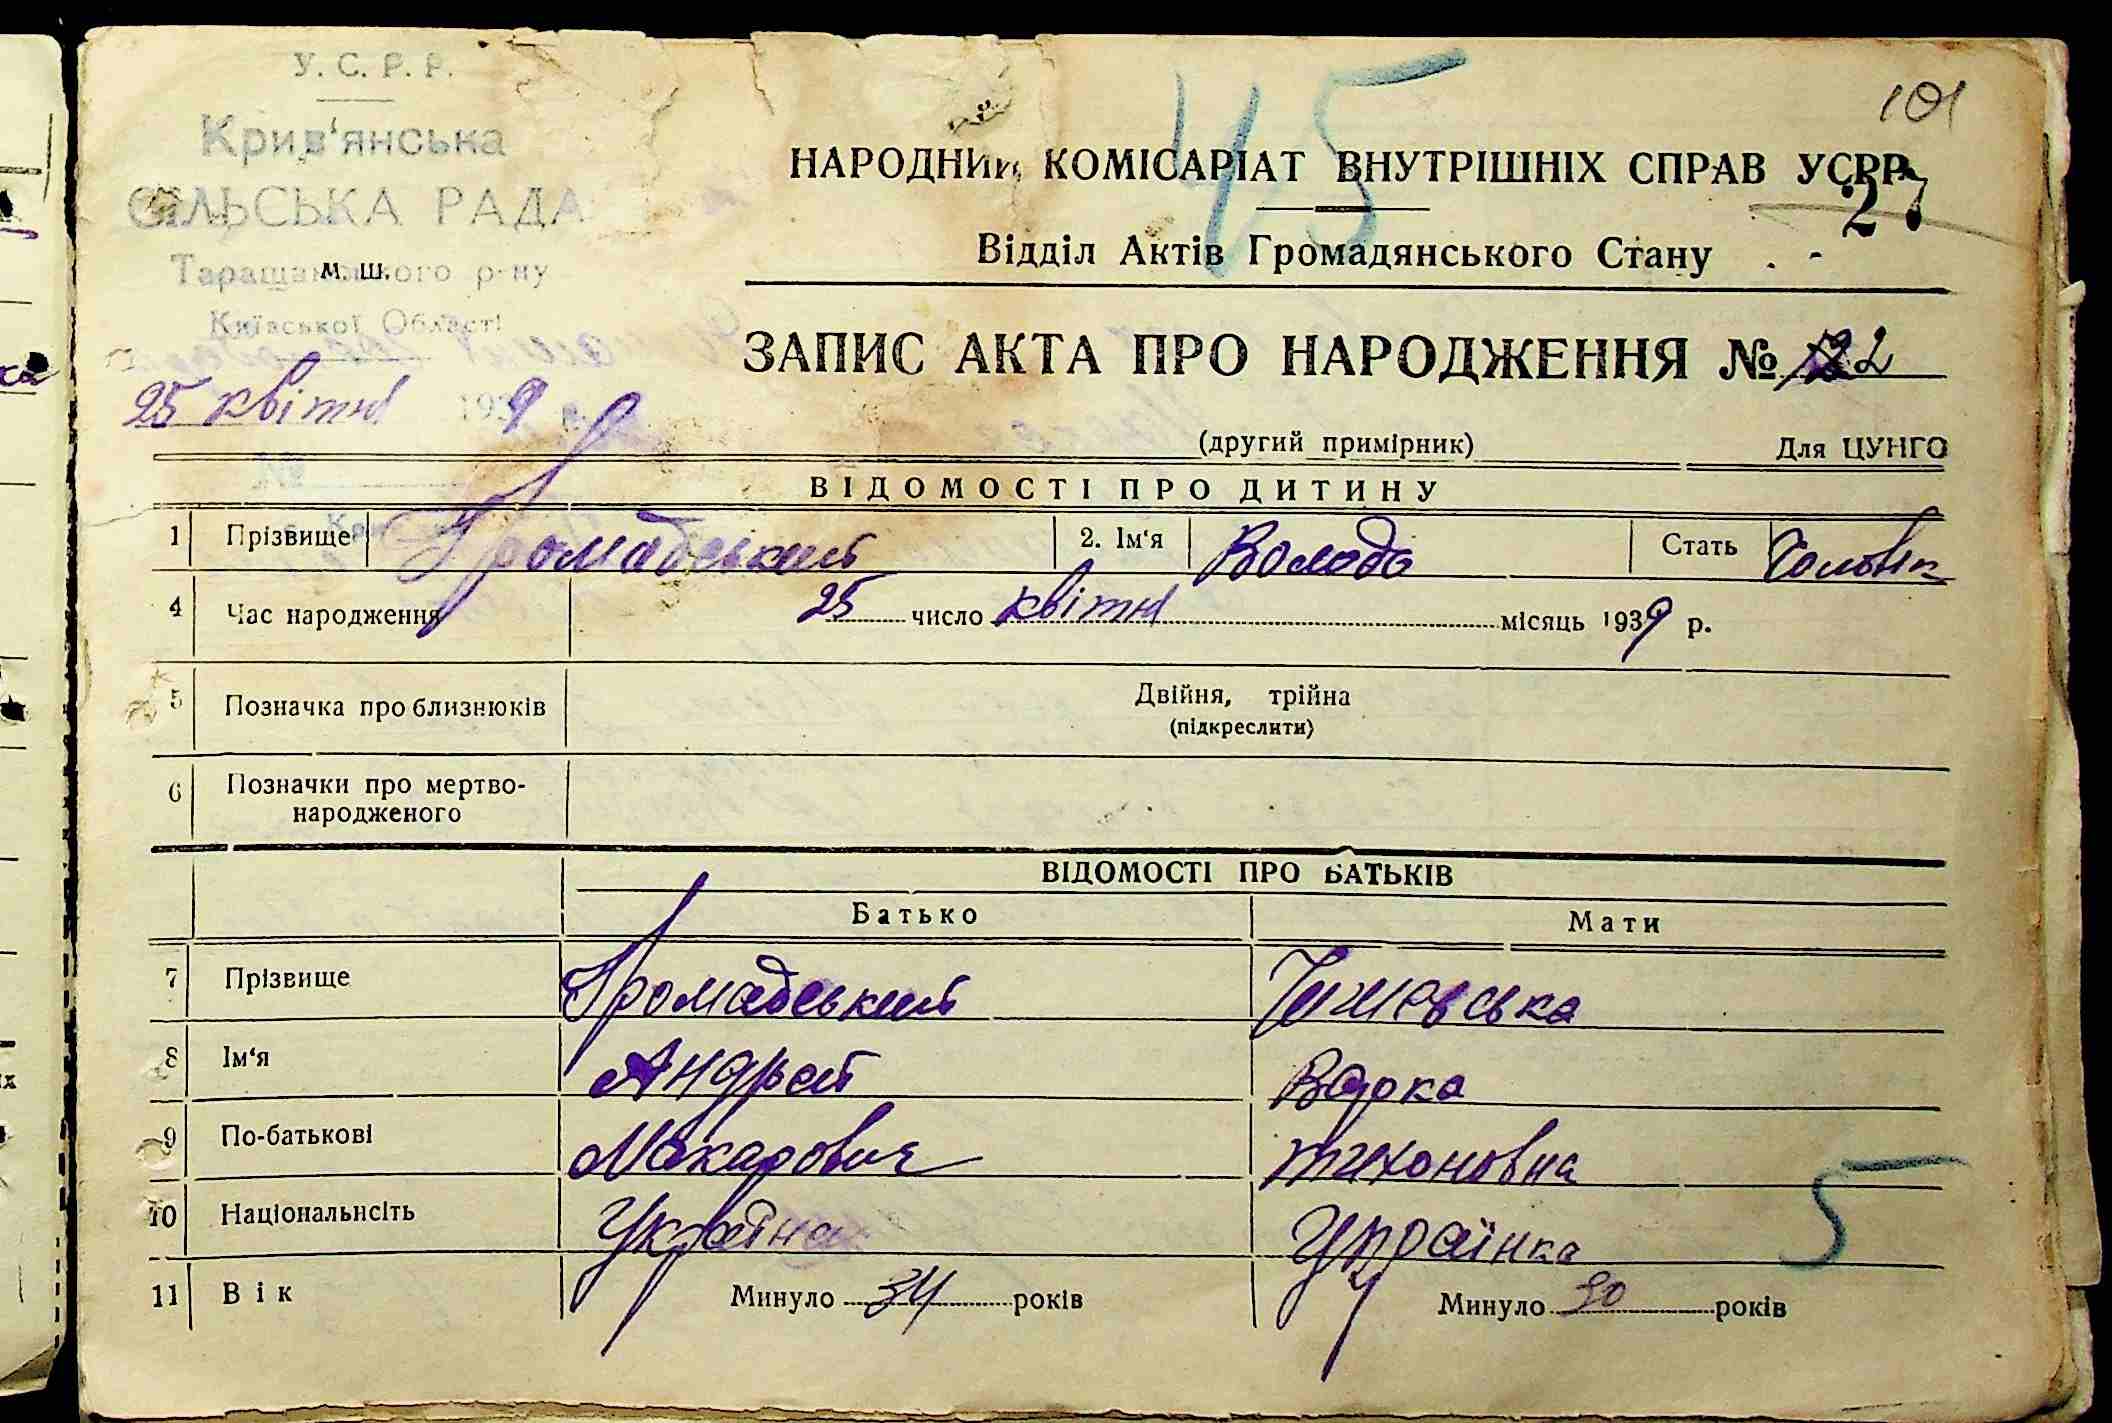 У. С. Р. Р.
Крив'янська
СІЛЬСЬКА РАДА
м. ш.
Таращанського р-ну
Київської Області
25 квітня 1939
45
101
НАРОДНИЙ КОМІСАРІАТ ВНУТРІШНІХ СПРАВ УСРР
27
Відділ Актів Громадянського Стану
ЗАПИС АКТА ПРО НАРОДЖЕННЯ № 22
(другий примірник) Для ЦУНГО
ВІДОМОСТІ ПРО ДИТИНУ
1 Прізвище Громадський 2. Ім'я Володя Стать Чоловік
4 Час народження 25 число квітня місяць 1939 р.
5 Позначка про близнюків Двійня, трійна
(підкреслити)
6 Позначки про мертво-
народженого
ВІДОМОСТІ ПРО БАТЬКІВ
Батько Мати
7 Прізвище Громадський
8 Ім'я Андрей Варка
9 По-батькові Макарович Тихоновна
10 Національнсіть Українка
5
11 Вік Минуло 34 років Минуло 30 років